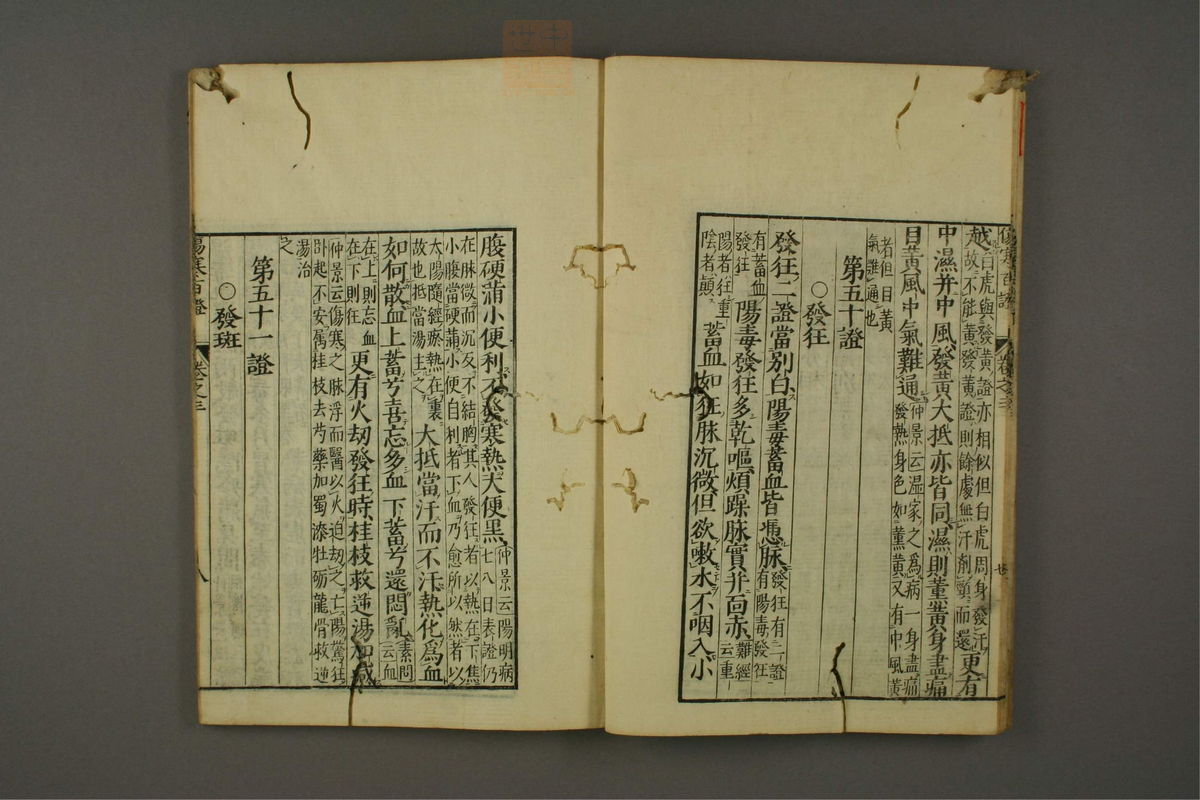 傷寒百證 卷之三
越白虎與發黃證亦相似但白虎周身發汗
故不能黃發黃證則餘處無汗劑頸而還更有
中濕并中風發黃大抵亦皆同濕則薰黃身盡痛
目黃風中氣難通仲景云濕家之爲病一身盡痛
發熱身色如薰黃又有中風黃
者但目黃
氣難通也
第五十證
○發狂
發狂二證當別白陽毒蓄血皆憑脉發狂有二證
有陽毒發狂
有蓄血
發狂
陽毒發狂多乾嘔煩躁脉實并面赤難經
云重
陽者狂重
陰者顛
蓄血如狂脉沉微但欲嗽水不咽入小
腹硬滿小便利不發寒熱大便黑仲景云陽明病
七八日表證仍
在脉微而沉反不結胸其人發狂者以熱在下焦
小腹當硬滿小便自利者下血乃愈所以然者以
太陽隨經瘀熱在裏
故也抵當湯主之
大抵當汗而不汗熱化爲血
如何散血上蓄兮喜忘多血下蓄兮還悶亂素問
云血
在上則忘血
在下則狂
更有火刼發狂時桂枝救逆湯加減
仲景云傷寒之脉浮而醫以火迫刼之亡陽驚狂
卧起不安屬桂枝去芍藥加蜀漆牡礪龍骨救逆
湯治
之
第五十一證
○發斑
傷寒百證 卷之三